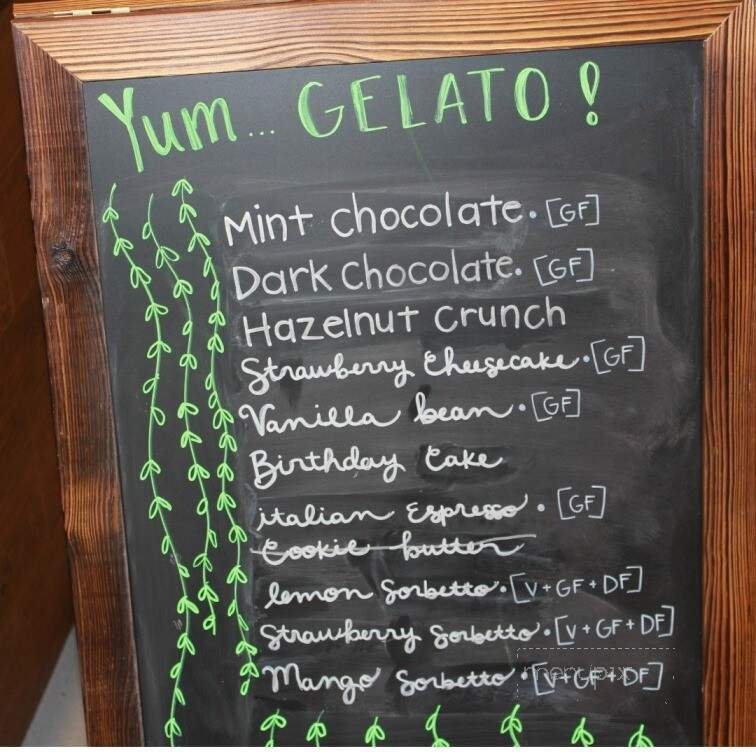 Yum... GELATO!
Mint Chocolate. [GF]
Dark Chocolate. [GF]
Hazelnut Crunch
Strawberry Cheesecake. [GF]
Vanilla bean. [GF]
Birthday Cake
italian Espresso. [GF]
Cookie butter
lemon Sorbetto. [V+GF+DF]
Strawberry Sorbetto. [V+GF+DF]
Mango Sorbetto. [V+GF+DF]
menupix